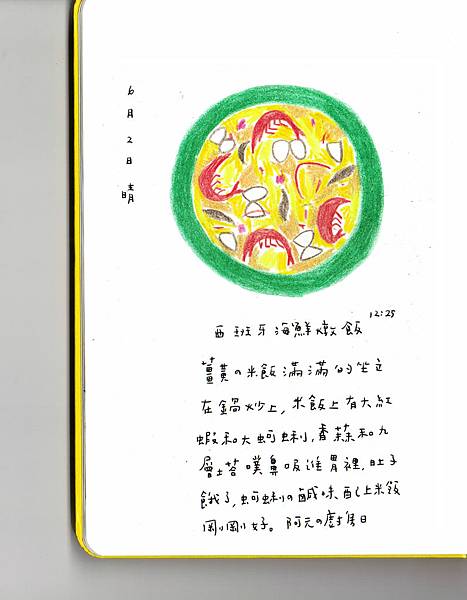 6月2日 晴
12:25
西班牙海鮮燉飯
薑黃の米飯滿滿的坐立
在鍋炒上,米飯上有大紅
蝦和大蚵蜊,香蒜和九
層塔噗鼻吸進胃裡,肚子
餓了,蚵蜊の鹹味配上米飯
剛剛好。阿元の日